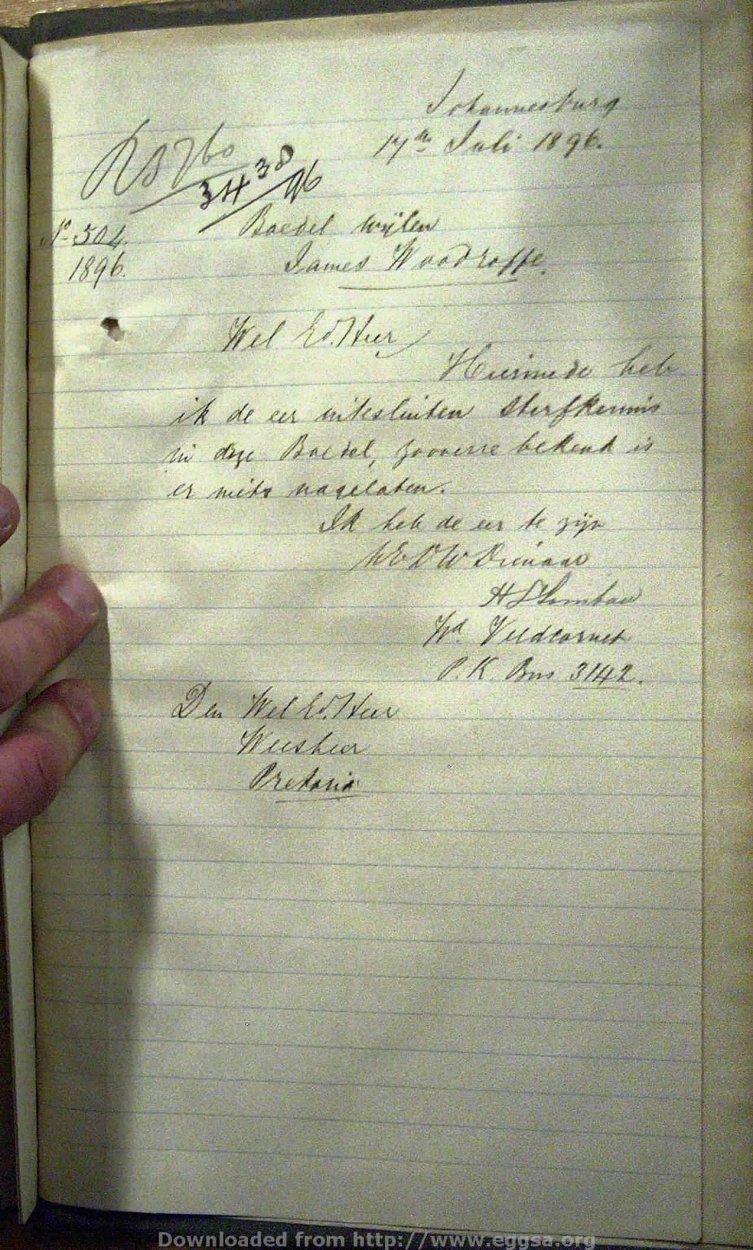 Johannesburg
17de Juli 1896.
3438/96
No 504.
1896.
Boedel wijlen
James Woodroffe.
Wel Ed. Heer
Hiermede heb
ik de eer intesluiten sterfkennis
in deze Boedel, zooverre bekend is
er niets nagelaten.
Ik heb de eer te zijn
UEDW Dienaar
Wd. Veldcornet
P.K. Bus 3142.
Den Wel Ed. Heer
Weesheer
Pretoria
Downloaded from http://www.eggsa.org